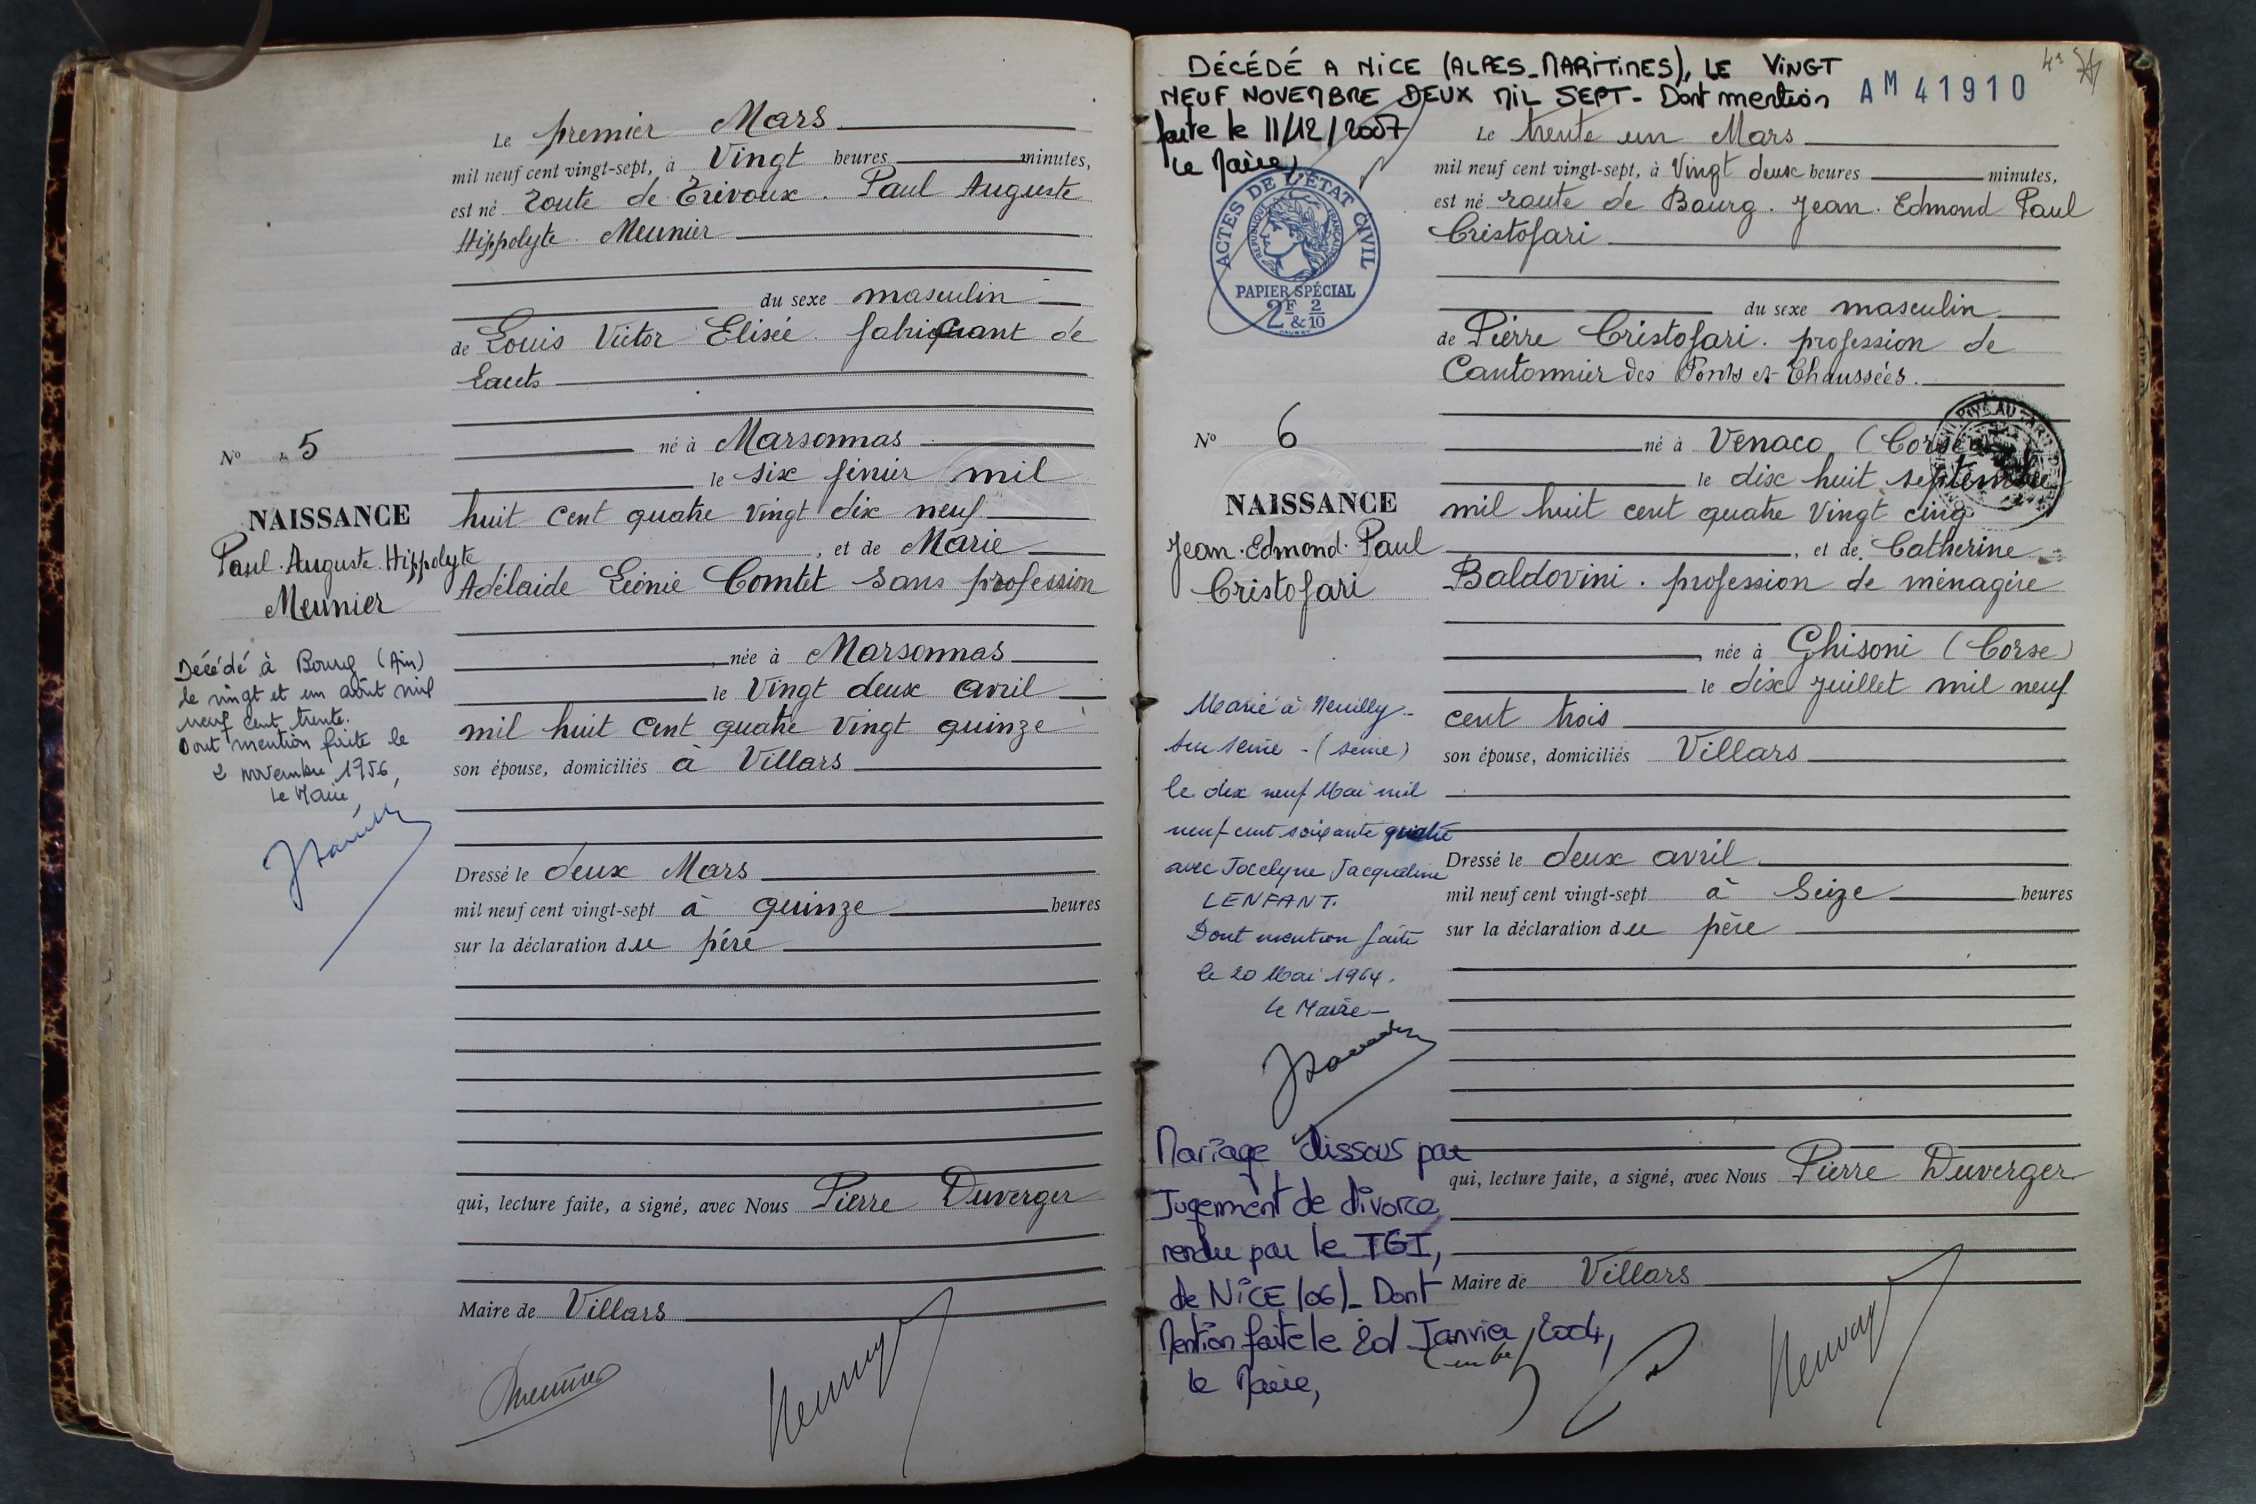 Le premier Mars
mil neuf cent vingt-sept, à Vingt heures minutes,
est né Route de Trévoux. Paul Auguste
Hippolyte. Meunier
du sexe masculin
de Louis Victor Elisée. fabriquant de
Lacets
né à Marsonnas
le six février mil
huit cent quatre vingt dix neuf
, et de Marie
Adélaide Léonie Comtet sans profession
, née à Marsonnas
le Vingt deux avril
mil huit cent quatre vingt quinze
son épouse, domiciliés à Villars
Dressé le deux Mars
mil neuf cent vingt-sept à quinze heures
sur la déclaration du père
qui, lecture faite, a signé, avec Nous Pierre Duverger
Maire de Villars
Nº 5
NAISSANCE
Paul. Auguste. Hippolyte
Meunier
Décédé à Bourg (Ain)
le vingt et un août mil
neuf cent trente.
Dont mention faite le
2 novembre 1956,
Le Maire,
DÉCÉDÉ A NICE (ALPES-MARITIMES), LE VINGT
NEUF NOVEMBRE DEUX MIL SEPT - Dont mention
faite le 11/12/2007
Le Maire,
AM 41910
ACTES DE L'ÉTAT CIVIL
RÉPUBLIQUE FRANÇAISE
PAPIER SPÉCIAL
2F & 2/10
Le trente un Mars
mil neuf cent vingt-sept, à Vingt deux heures minutes,
est né route de Bourg. Jean. Edmond Paul
Cristofari
du sexe masculin
de Pierre Cristofari. profession de
Cantonnier des Ponts et Chaussées.
né à Venaco (Corse)
le dix huit septembre
mil huit cent quatre Vingt cinq
, et de Catherine
Baldovini. profession de ménagère
, née à Ghisoni (Corse)
le dix Juillet mil neuf
cent trois
son épouse, domiciliés Villars
Dressé le deux avril
mil neuf cent vingt-sept à Seize heures
sur la déclaration du père
qui, lecture faite, a signé, avec Nous Pierre Duverger
Maire de Villars
Nº 6
NAISSANCE
Jean. Edmond. Paul
Cristofari
Marié à Neuilly-
sur Seine - (Seine)
le dix neuf Mai mil
neuf cent soixante quatre
avec Jocelyne Jacqueline
LENFANT.
Dont mention faite
le 20 Mai 1964.
Le Maire -
Mariage dissous par
Jugement de divorce
rendu par le TGI,
de NICE (06)_ Dont
Mention faite le Janvier 2004,
Le Maire,